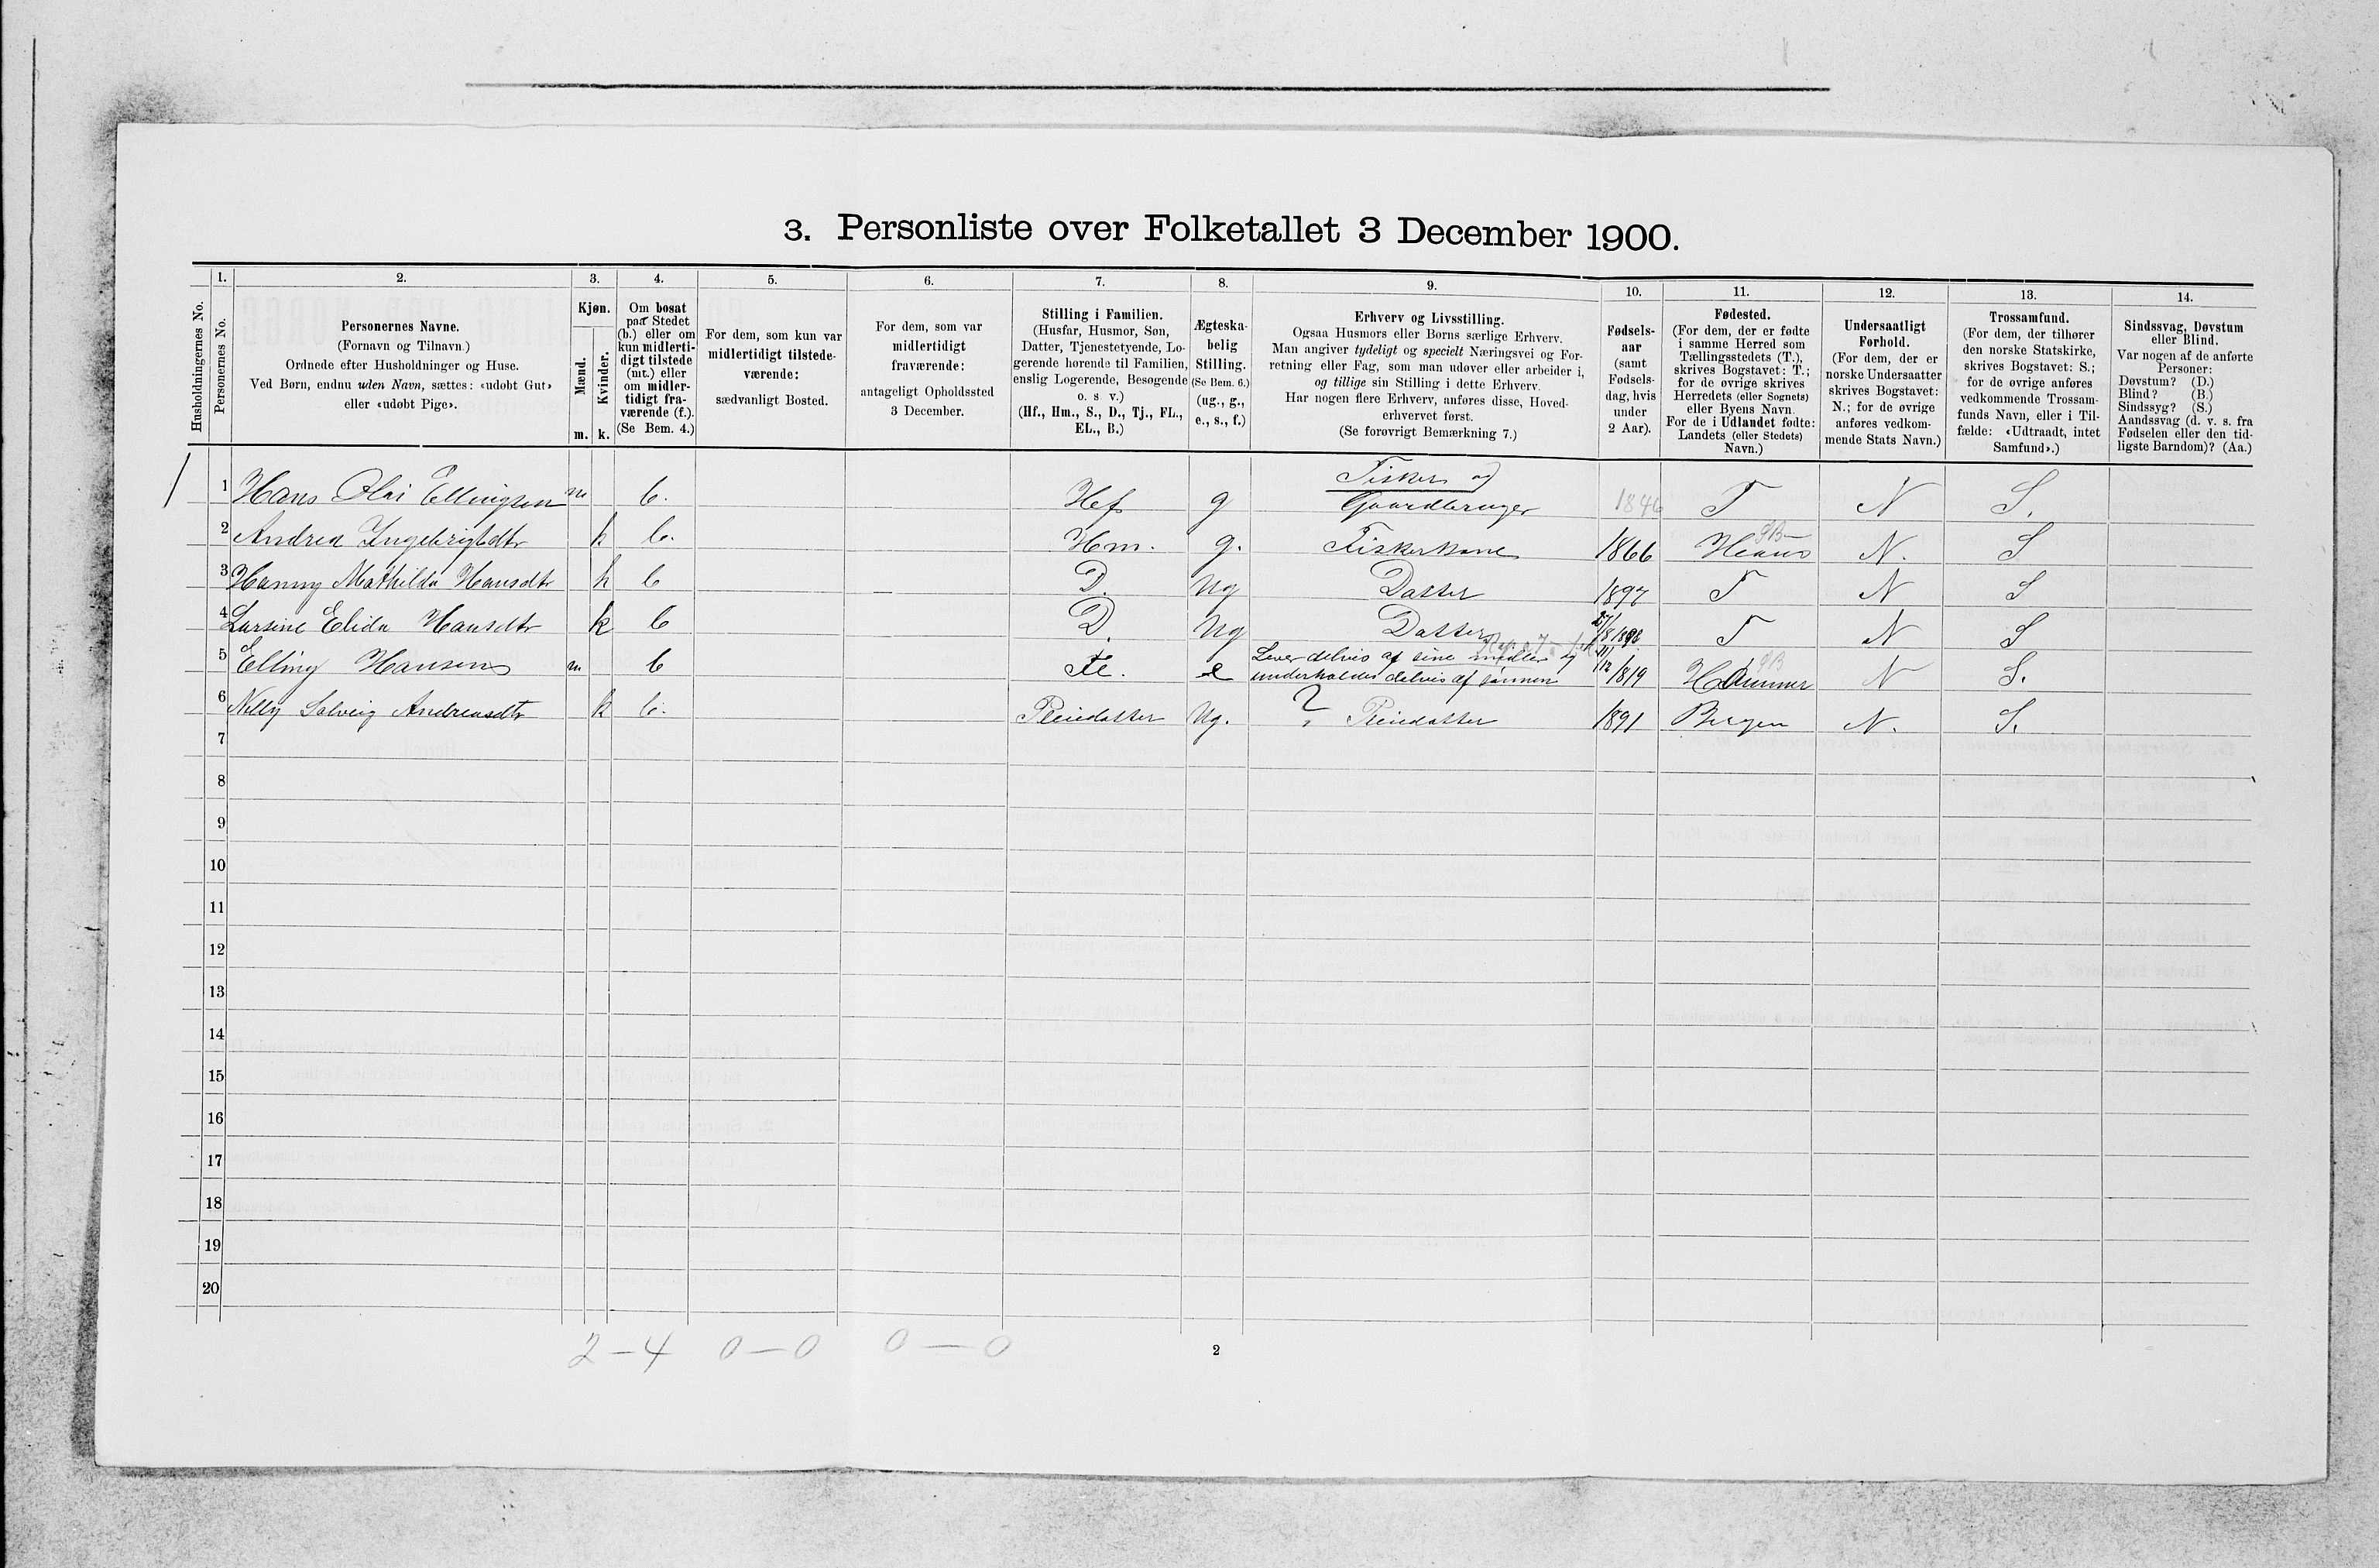 3. Personliste over Folketallet 3 December 1900.
Husholdningernes No.
1. Personernes No.
2. Personernes Navne.
(Fornavn og Tilnavn.)
Ordnede efter Husholdninger og Huse.
Ved Børn, endnu uden Navn, sættes: «udøbt Gut»
eller «udøbt Pige».
3. Kjøn.
Mænd. m.
Kvinder. k.
4. Om bosat
paa Stedet
(b.) eller om
kun midlerti-
digt tilstede
(mt.) eller
om midler-
tidigt fra-
værende (f.).
(Se Bem. 4.)
5. For dem, som kun var
midlertidigt tilstede-
værende:
sædvanligt Bosted.
6. For dem, som var
midlertidigt
fraværende:
antageligt Opholdssted
3 December.
7. Stilling i Familien.
(Husfar, Husmor, Søn,
Datter, Tjenestetyende, Lo-
gerende hørende til Familien,
enslig Logerende, Besøgende
o. s. v.)
(Hf., Hm., S., D., Tj., FL.,
EL., B.)
8. Ægteska-
belig
Stilling.
(Se Bem. 6.)
(ug., g.,
e., s., f.)
9. Erhverv og Livsstilling.
Ogsaa Husmors eller Børns særlige Erhverv.
Man angiver tydeligt og specielt Næringsvei og For-
retning eller Fag, som man udøver eller arbeider i,
og tillige sin Stilling i dette Erhverv.
Har nogen flere Erhverv, anføres disse, Hoved-
erhvervet først.
(Se forøvrigt Bemærkning 7.)
10. Fødsels-
aar
(samt
Fødsels-
dag, hvis
under
2 Aar).
11. Fødested.
(For dem, der er fødte
i samme Herred som
Tællingsstedets (T.),
skrives Bogstavet: T.;
for de øvrige skrives
Herredets (eller Sognets)
eller Byens Navn.
For de i Udlandet fødte:
Landets (eller Stedets)
Navn.)
12. Undersaatligt
Forhold.
(For dem, der er
norske Undersaatter
skrives Bogstavet:
N.; for de øvrige
anføres vedkom-
mende Stats Navn.)
13. Trossamfund.
(For dem, der tilhører
den norske Statskirke,
skrives Bogstavet: S.;
for de øvrige anføres
vedkommende Trossam-
funds Navn, eller i Til-
fælde: «Udtraadt, intet
Samfund».)
14. Sindssvag, Døvstum
eller Blind.
Var nogen af de anførte
Personer:
Døvstum? (D.)
Blind? (B.)
Sindssyg? (S.)
Aandssvag (d. v. s. fra
Fødselen eller den tid-
ligste Barndom)? (Aa.)
1 1 Hans Olai Ellingsen m b. Hef g Fisker og Gaardbruger 1846 T N S.
2 Andrea Ingebrigtdtr k b. Hm. g. Fiskerkone 1866 Haus SB N. S
3 Hanny Mathilda Hansdtr k b D. Ug Datter 1897 T N S
4 Larsine Elida Hansdtr k b D. Ug Datter 27/8 1898. T N S
5 Elling Hansen m b e Lever delvis af sine midler og underholdes delvis af sønnen 1819 Hammer SB N S.
6 Nelly Solveig Andreasdtr k b. Pleiedatter Ug. ? Pleiedatter 1891 Bergen N. S.
7
8
9
10
11
12
13
14
15
16
17
18
19
20
2 – 4 0 – 0 0 – 0
2